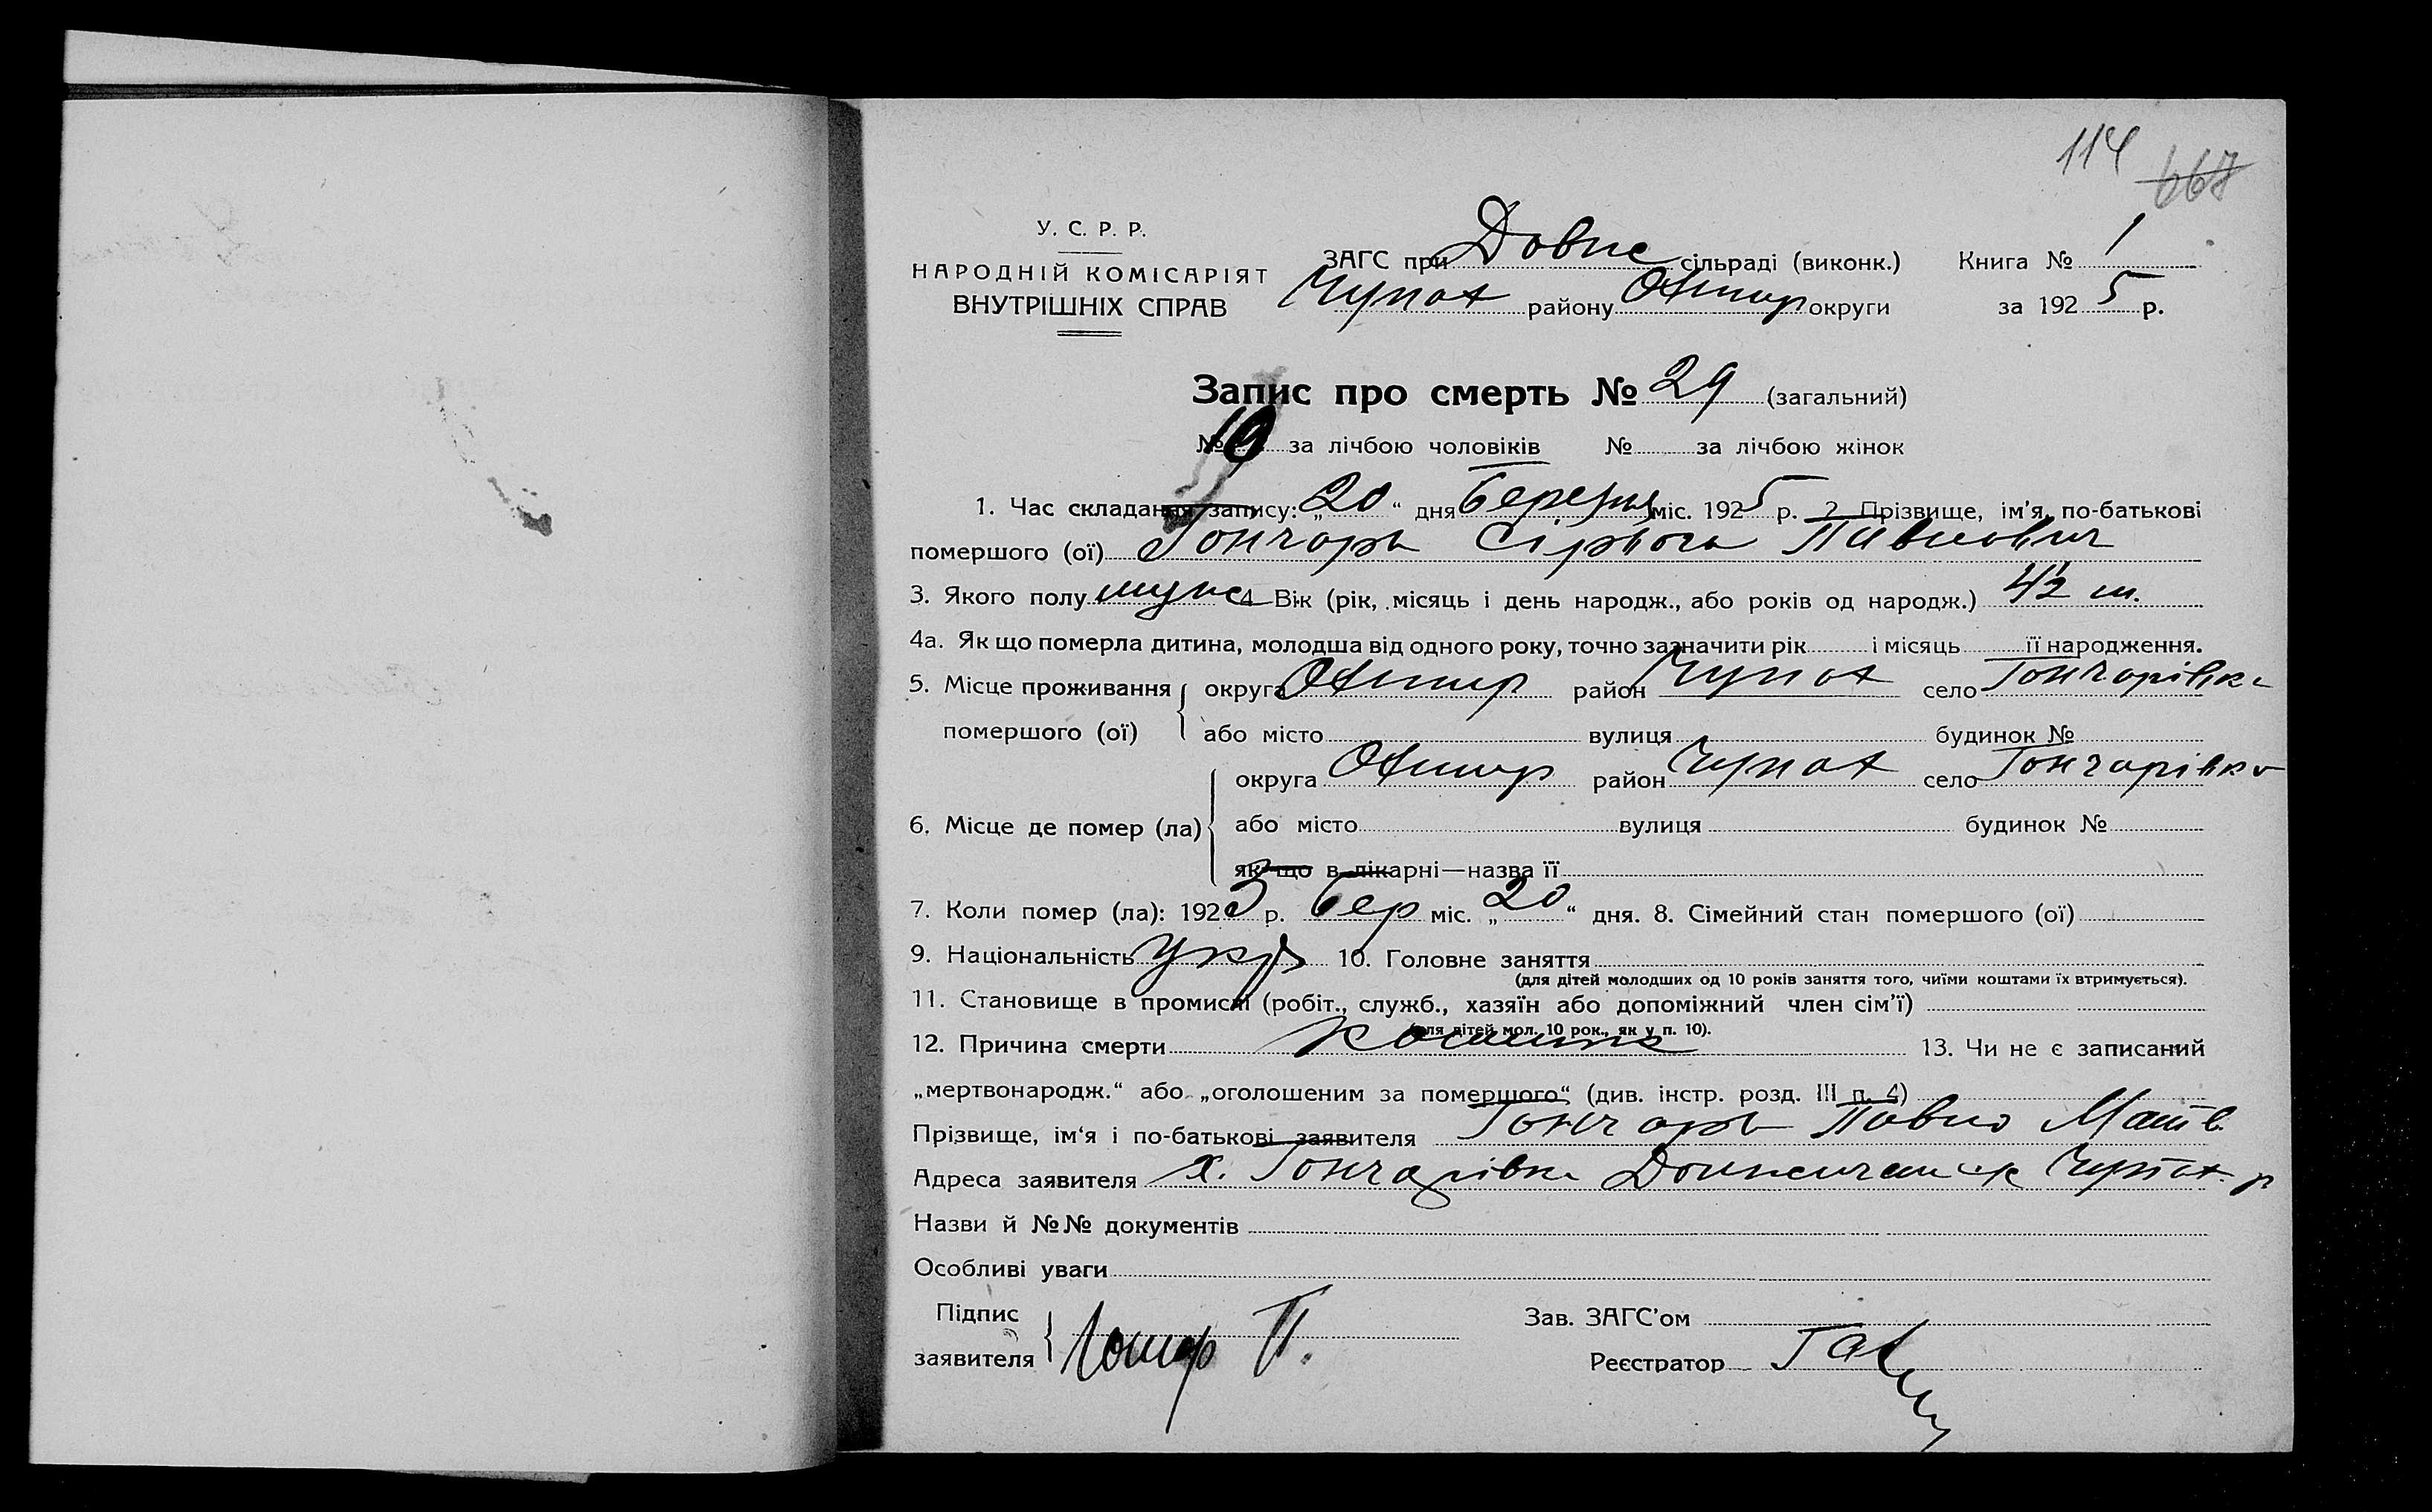 114 667
У. С. Р. Р.
НАРОДНІЙ КОМІСАРІЯТ
ВНУТРІШНІХ СПРАВ
ЗАГС при сільраді (виконк.)
Чупах району Охтир округи
Книга № 1
за 1925 р.
Запис про смерть № 29 (загальний)
№ 19 за лічбою чоловіків № за лічбою жінок
1. Час складання запису: „20“ дня Березня міс. 1925 р. 2. Прізвище, ім'я, по-батькові
помершого (ої) Гончарь Сірьога Павлович
3. Якого полу муж 4. Вік (рік, місяць і день народж., або років од народж.) 4½ м.
4а. Як що померла дитина, молодша від одного року, точно зазначити рік і місяць її народження.
5. Місце проживання помершого (ої) округа Охтир район Чупах село Гончарівка
або місто вулиця будинок №
6. Місце де помер (ла) округа Охтир район Чупах село Гончарівка
або місто вулиця будинок №
як що в лікарні—назва її
7. Коли помер (ла): 1925 р. бер міс. „20“ дня. 8. Сімейний стан помершого (ої)
9. Національність укр 10. Головне заняття
(для дітей молодших од 10 років заняття того, чиїми коштами їх втримується).
11. Становище в промислі (робіт., служб., хазяїн або допоміжний член сім'ї)
(для дітей мол. 10 рок., як у п. 10).
12. Причина смерти 13. Чи не є записаний
„мертвонародж.“ або „оголошеним за помершого“ (див. інстр. розд. III п. 4)
Прізвище, ім'я і по-батькові заявителя Гончарь Павло Матв
Адреса заявителя х. Гончарівка Чупах. р
Назви й №№ документів
Особливі уваги
Підпис заявителя П.
Зав. ЗАГС'ом
Реєстратор